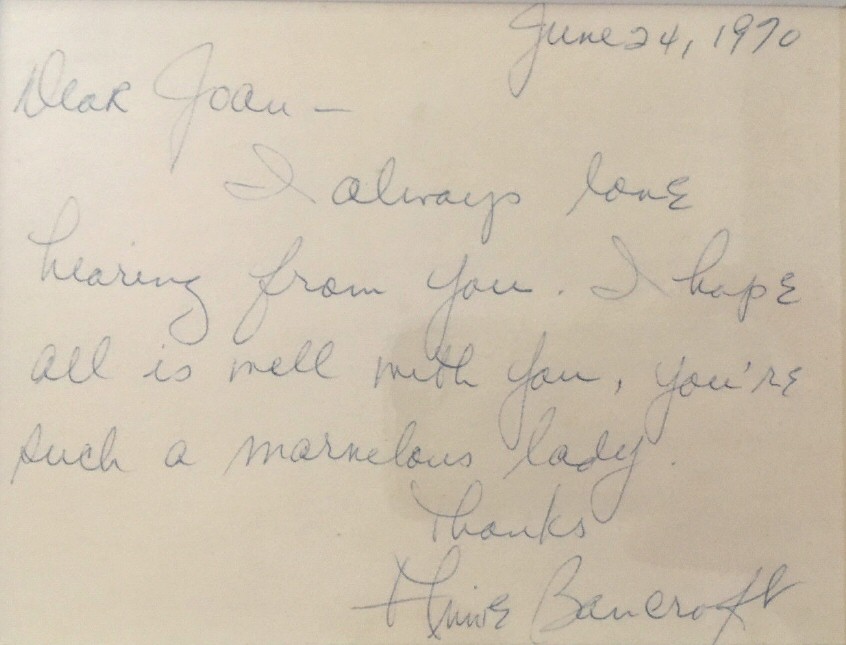 June 24, 1970
Dear Joan —
I always love
hearing from you. I hope
all is well with you, you're
such a marvelous lady.
Thanks
Anne Bancroft